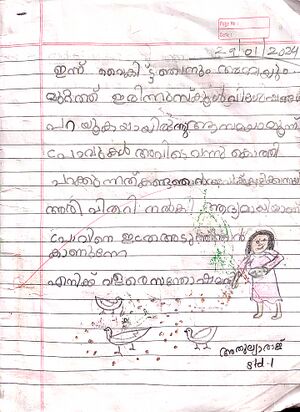 Page No.:
Date:
29/01/2024
ഇന്ന് വൈകിട്ട് ഞാനും അമ്മയും
മുറ്റത്ത് ഇരിന്ന് സ്കൂൾ വിശേഷങ്ങൾ
പറയുകയായിരുന്നു ആ സമയം മൂന്ന്
പ്രാവുകൾ അവിടെ വന്നു കൊത്തി
പറക്കുന്നത് കണ്ടു ഞാൻ
അരി വിതറി നൽകി ആദ്യമായാണ്
പ്രാവിനെ ഇത്ര അടുത്ത് ഞാൻ
കാണുന്നേ
എനിക്ക് വളരെ സന്തോഷമായി
അതുല്യാരാജ്
std-1